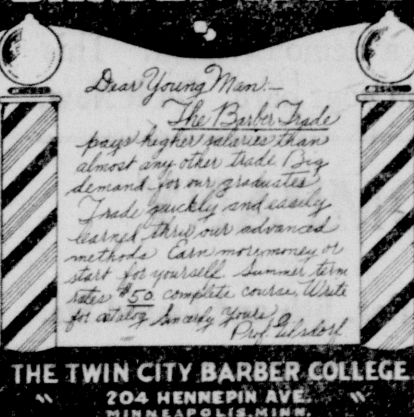 Dear Young Man:—
The Barber Trade
pays higher salaries than
almost any other trade Big
demand for our graduates
Trade quickly and easily
learned thru our advanced
methods Earn more money or
start for yourself Summer term
rates $50 complete course, Write
for catalog Sincerely Yours
Prof. Gilsdorf
THE TWIN CITY BARBER COLLEGE
204 HENNEPIN AVE.
MINNEAPOLIS, MINN.